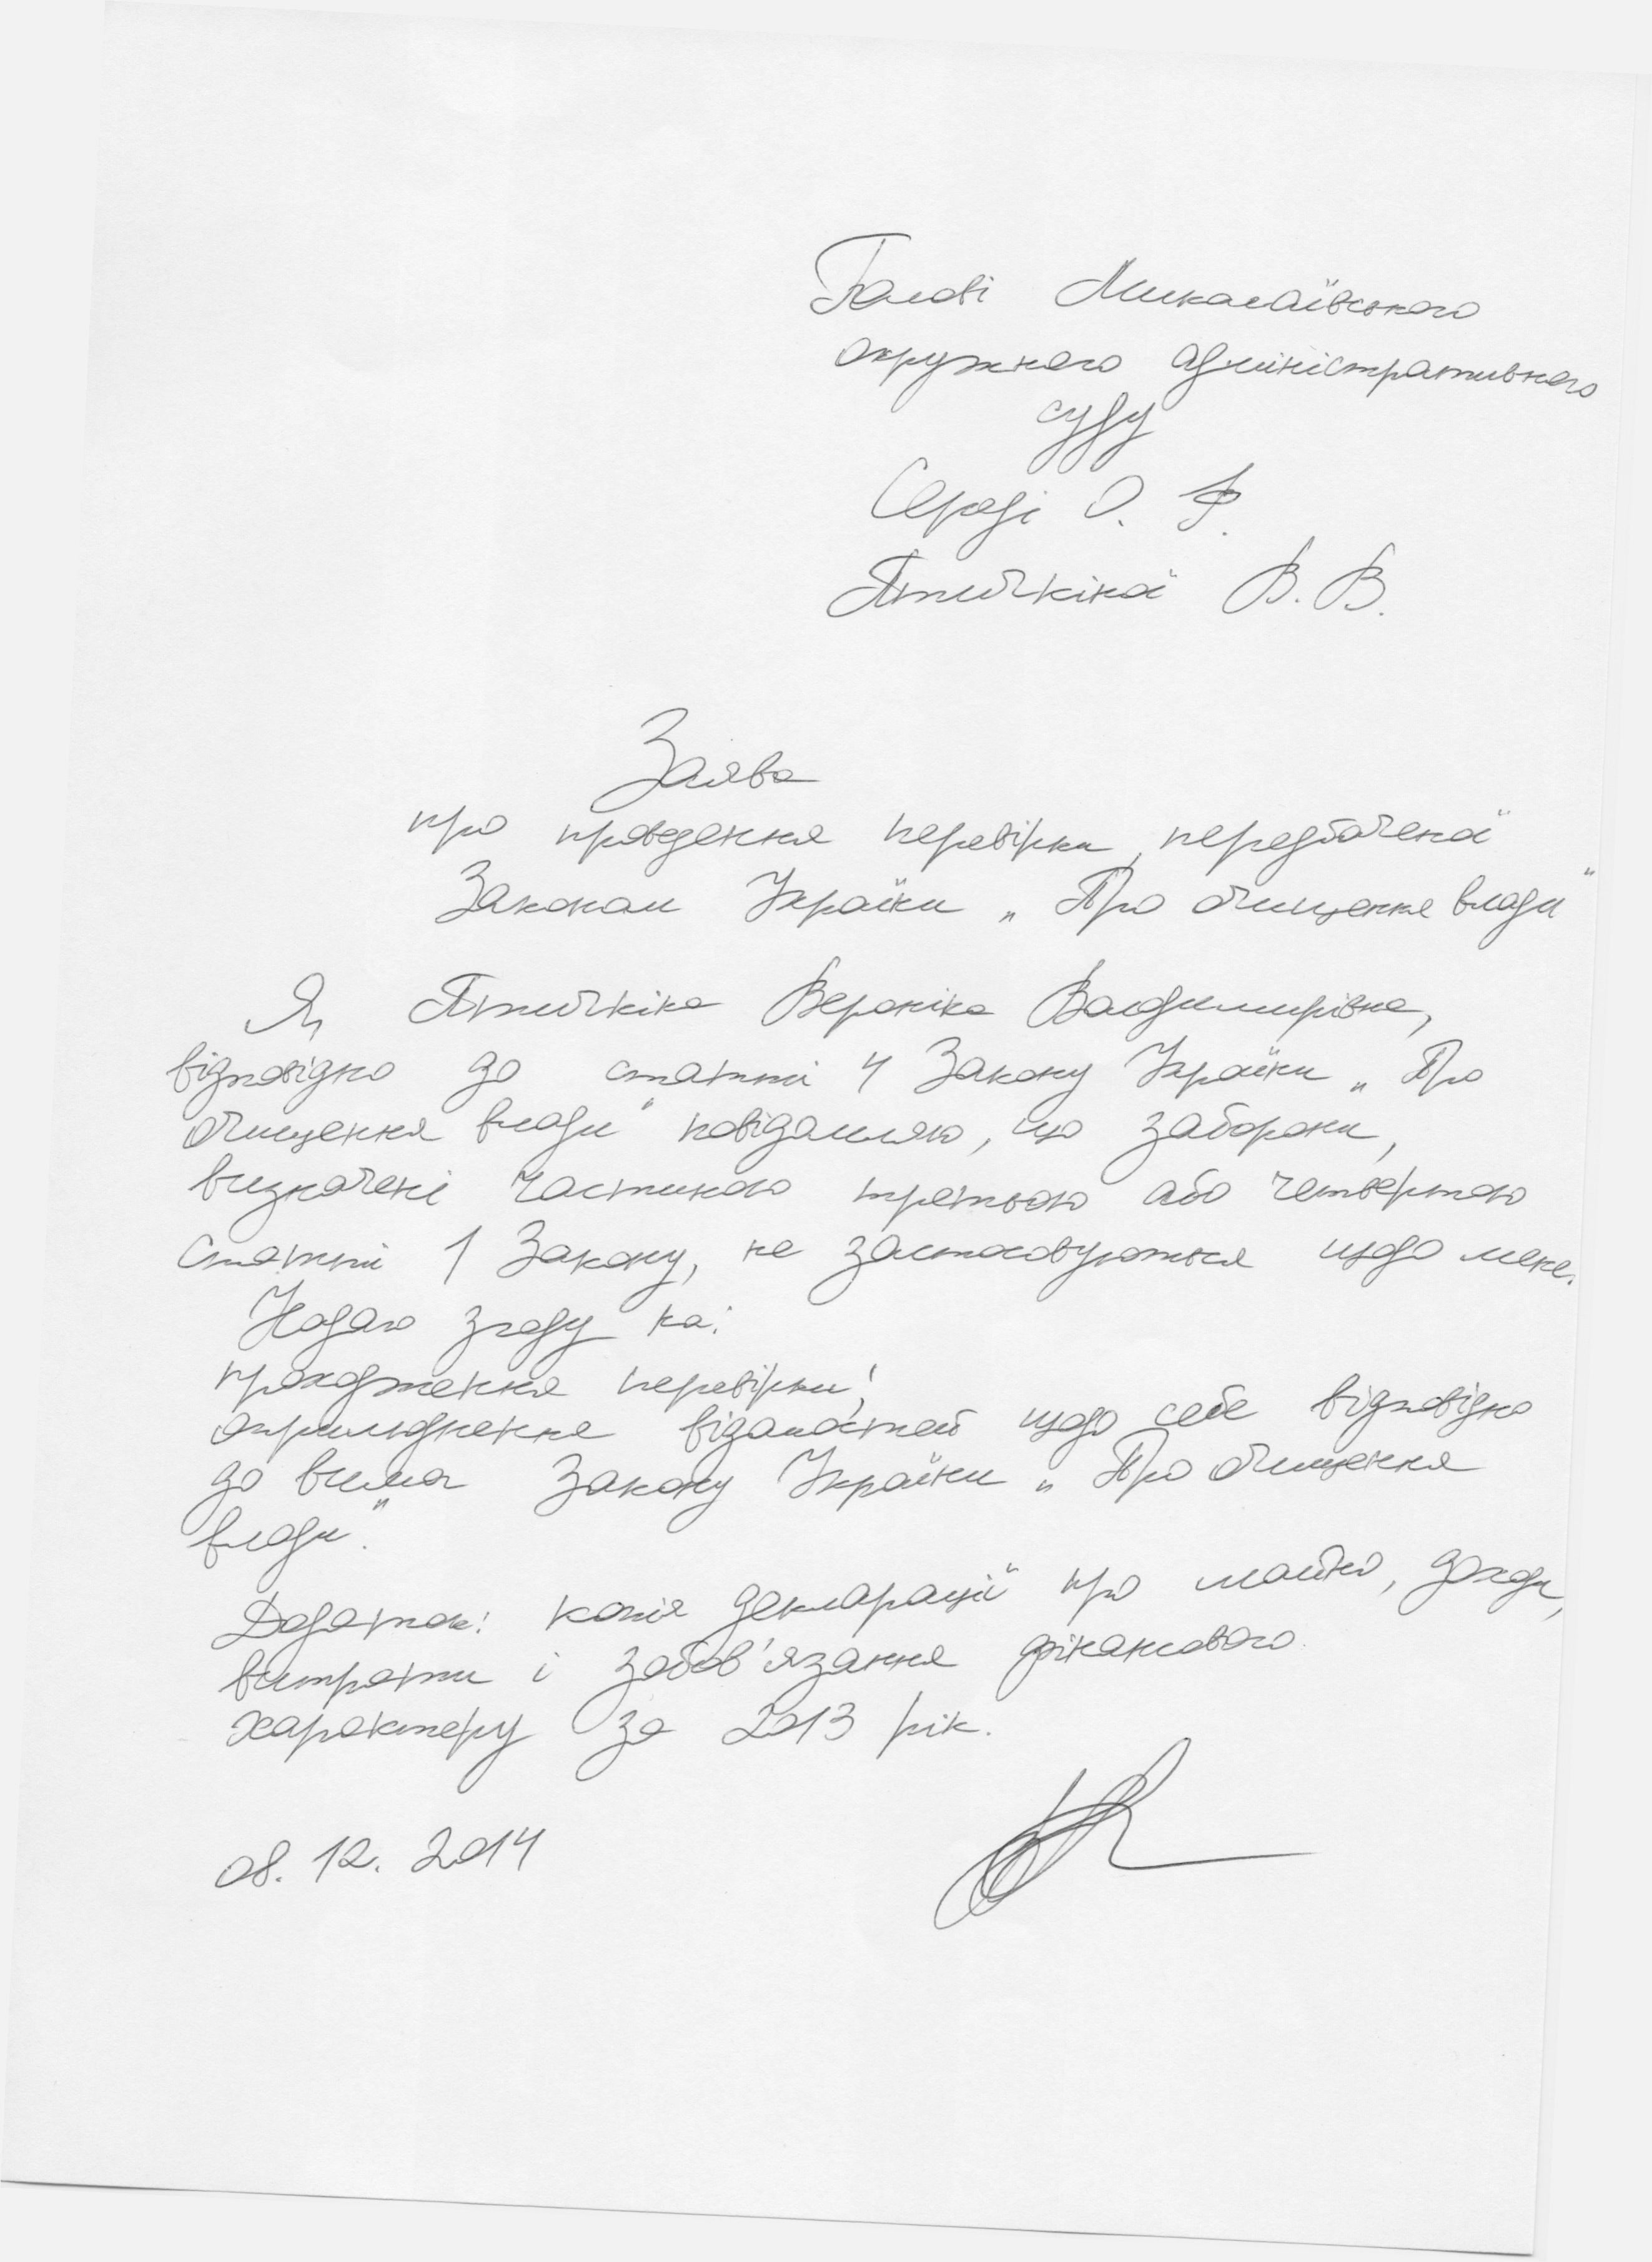 Голові Миколаївського
окружного адміністративного
суду
Середі О. Ф.
Птичкіної В. В.
Заява
про проведення перевірки, передбаченої
Законом України „Про очищення влади"
Я, Птичкіна Вероніка Валдимирівна,
відповідно до статті 4 Закону України „Про
очищення влади" повідомляю, що заборони,
визначені частиною третьою або четвертою
статті 1 Закону, не застосовуються щодо мене.
Надаю згоду на:
проходження перевірки;
оприлюднення відомостей щодо себе відповідно
до вимог Закону України „Про очищення
влади".
Додаток: копія декларації про майно, доходи,
витрати і зобов'язання фінансового
характеру за 2013 рік.
08.12.2014